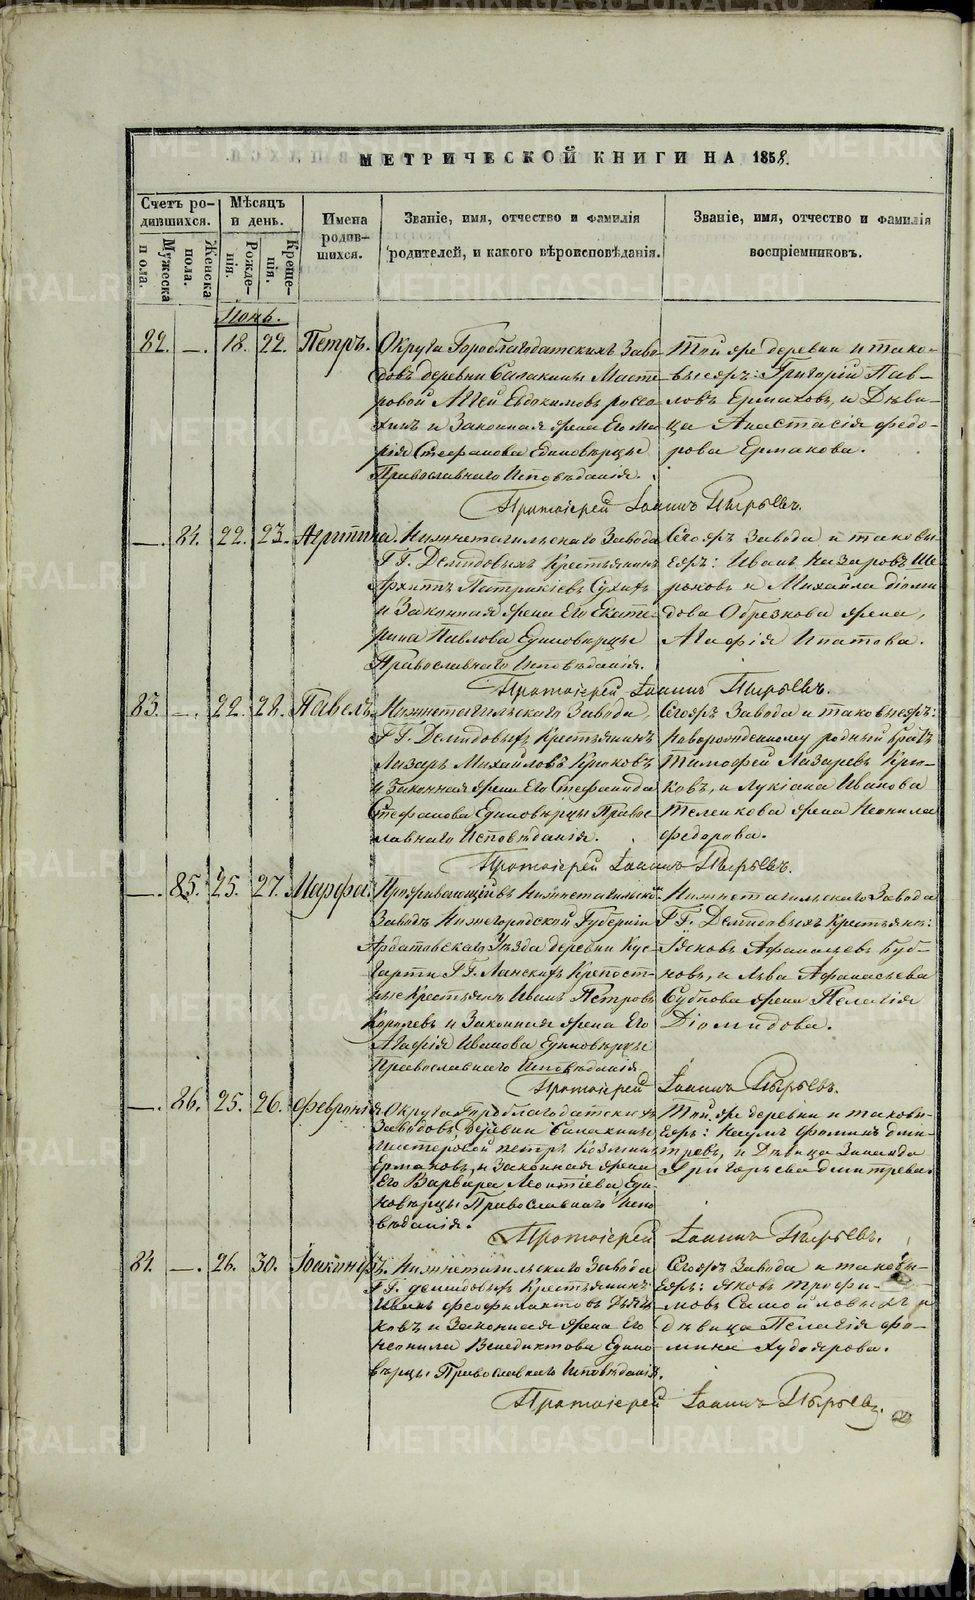 METRIKI.GASO-URAL.RU
МЕТРИЧЕСКОЙ КНИГИ НА 1858.
Счетъ ро-
дившихся.
Мужеска
пола.
Женска
пола.
Мѣсяцъ
и день.
Рожде-
нія.
Креще-
нія.
Имена
родив-
шихся.
Званіе, имя, отчество и фамилія
родителей, и какого вѣроисповѣданія.
Званіе, имя, отчество и фамилія
воспріемниковъ.
Іюнь.
82. —. 18. 22. Петръ.
Округа Гороблагодатскихъ Заво-
довъ деревни Салакины Масте-
ровой Евдокимовъ
и Законная жена Его Ма-
рія Стефанова Единовѣрцы
Православнаго Исповѣданія.
Той же деревни и тако-
выхже: Григорій Пав-
ловъ Ермаковъ, и Дѣви-
ца Анастасія Федо-
рова Ермакова.
Протоіерей Іоаннъ Пырьевъ.
—. 84. 22. 23. Агрипина.
Нижнетагильскаго Завода
Г.Г. Демидовыхъ Крестьянинъ
Архипъ Патрикіевъ Сухихъ
и Законная жена Его Екате-
рина Павлова Единовѣрцы
Православнаго Исповѣданія.
Сегожъ Завода и таковы-
хже: Иванъ Назаровъ Ше-
роновъ и Михайла Діоми-
дова Обрезкова жена,
Агафія Ипатова.
Протоіерей Іоаннъ Пырьевъ.
83. —. 22. 28. Павелъ.
Нижнетагильскаго Завода,
Г.Г. Демидовыхъ Крестьянинъ
Лазарь Михайловъ Крюковъ
и Законная жена Его Стефанида
Стефанова Единовѣрцы Правос-
лавнаго Исповѣданія.
Сегожъ Завода и таковыхжъ:
Новорожденному родный братъ
Тимофей Лазаревъ Крю-
ковъ, и Лукіана Иванова
Теленкова жена Неонила
Федорова.
Протоіерей Іоаннъ Пырьевъ.
—. 85. 25. 27. Марфа.
Проживающій въ Нижнетагильском
Заводѣ Нижегородской Губерніи
Ардатовскаго Уѣзда деревни Кус-
Г.Г. Ланскихъ Крепост-
ные Крестьянъ Иванъ Петровъ
Королевъ и Законная жена Его
Агафія Иванова Единовѣрцы
Православнаго Исповѣданія
Нижнетагильскаго Завода
Г.Г. Демидовыхъ Крестьян:
Яковъ Афанасьевъ Буб-
новъ, и Льва Афанасьева
Бубнова жена Пелагія
Діомидова.
Протоіерей Іоаннъ Пырьевъ.
—. 86. 25. 26. Февронія
Округа Гороблагодатскихъ
Заводовъ, деревни Салакины
Мастеровой Петръ Козминъ
Ермаковъ, и Законная жена
Его Варвара Леонтіева Еди-
новѣрцы Православнаго Испо-
вѣданія.
Той же деревни и таковы-
хжъ: Наумъ Фоминъ Дмит-
ревъ, и Дѣвица Зинаида
Григорьева Дмитрева.
Протоіерей Іоаннъ Пырьевъ.
84. —. 26. 30. Іоакинфъ.
Нижнетагильскаго Завода
Г.Г. Демидовыхъ Крестьянинъ
Иванъ Феофилактовъ
и Законная жена Его
Неонила Венедиктова Едино-
вѣрцы Православнаго Исповѣданія.
Сегожъ Завода и таковы-
хжъ: Яковъ Трофи-
мовъ Самойловыхъ и
дѣвица Пелагія Фо-
мина Худоярова.
Протоіерей Іоаннъ Пырьевъ.